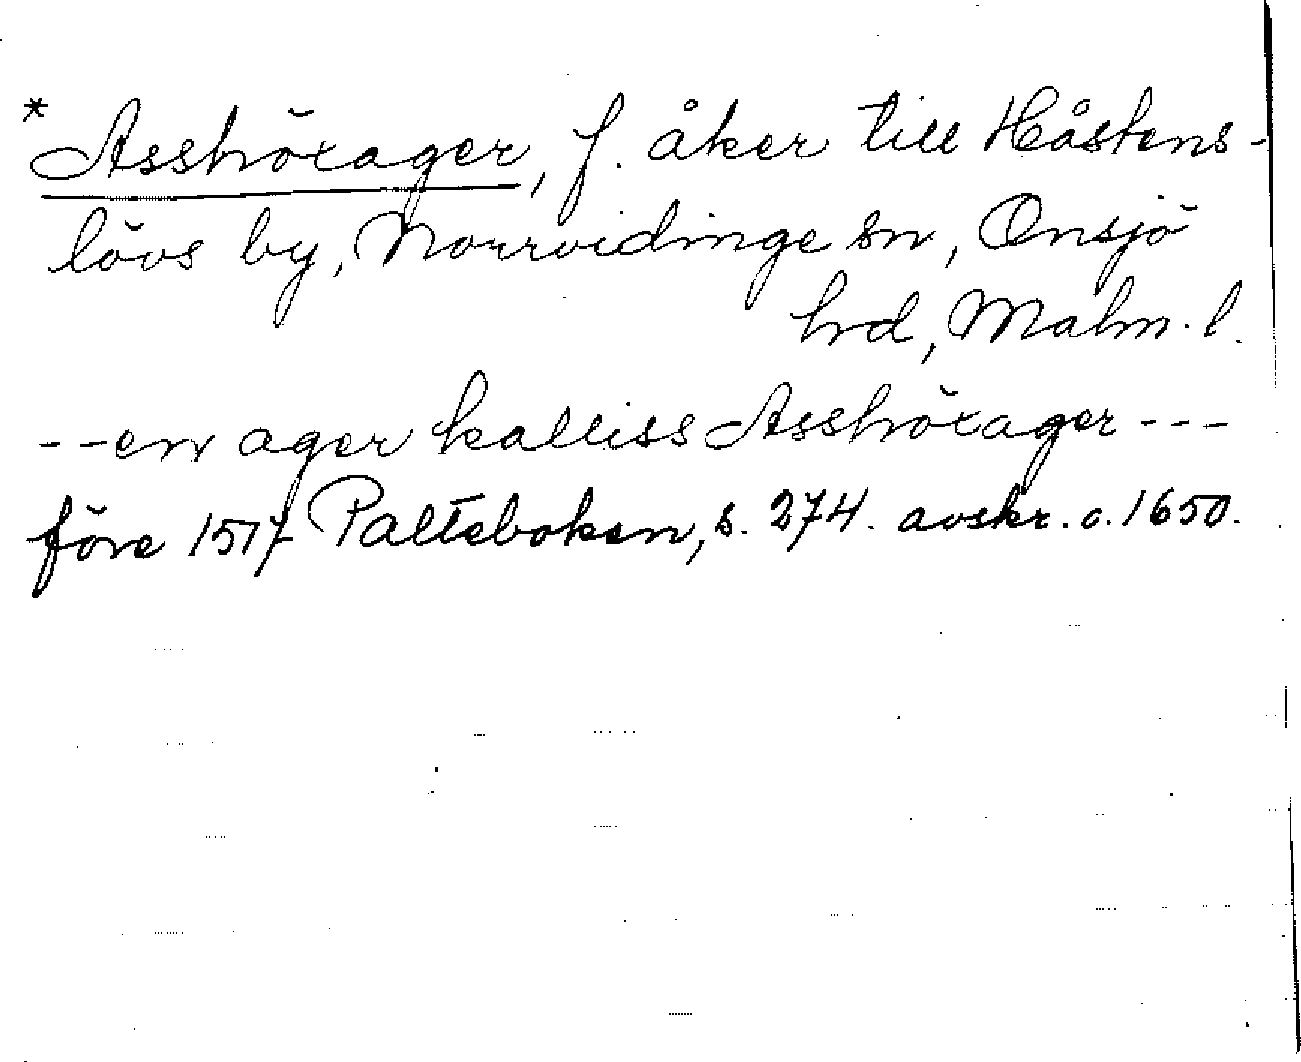 * Asshöxager, f. åker till Håstens-
lövs by, Norrvidinge sn, Onsjö
hd, Malm. l.
--en ager kalliss Asshöxager---
före 1517 Palteboken, s. 274. avskr. c. 1650.